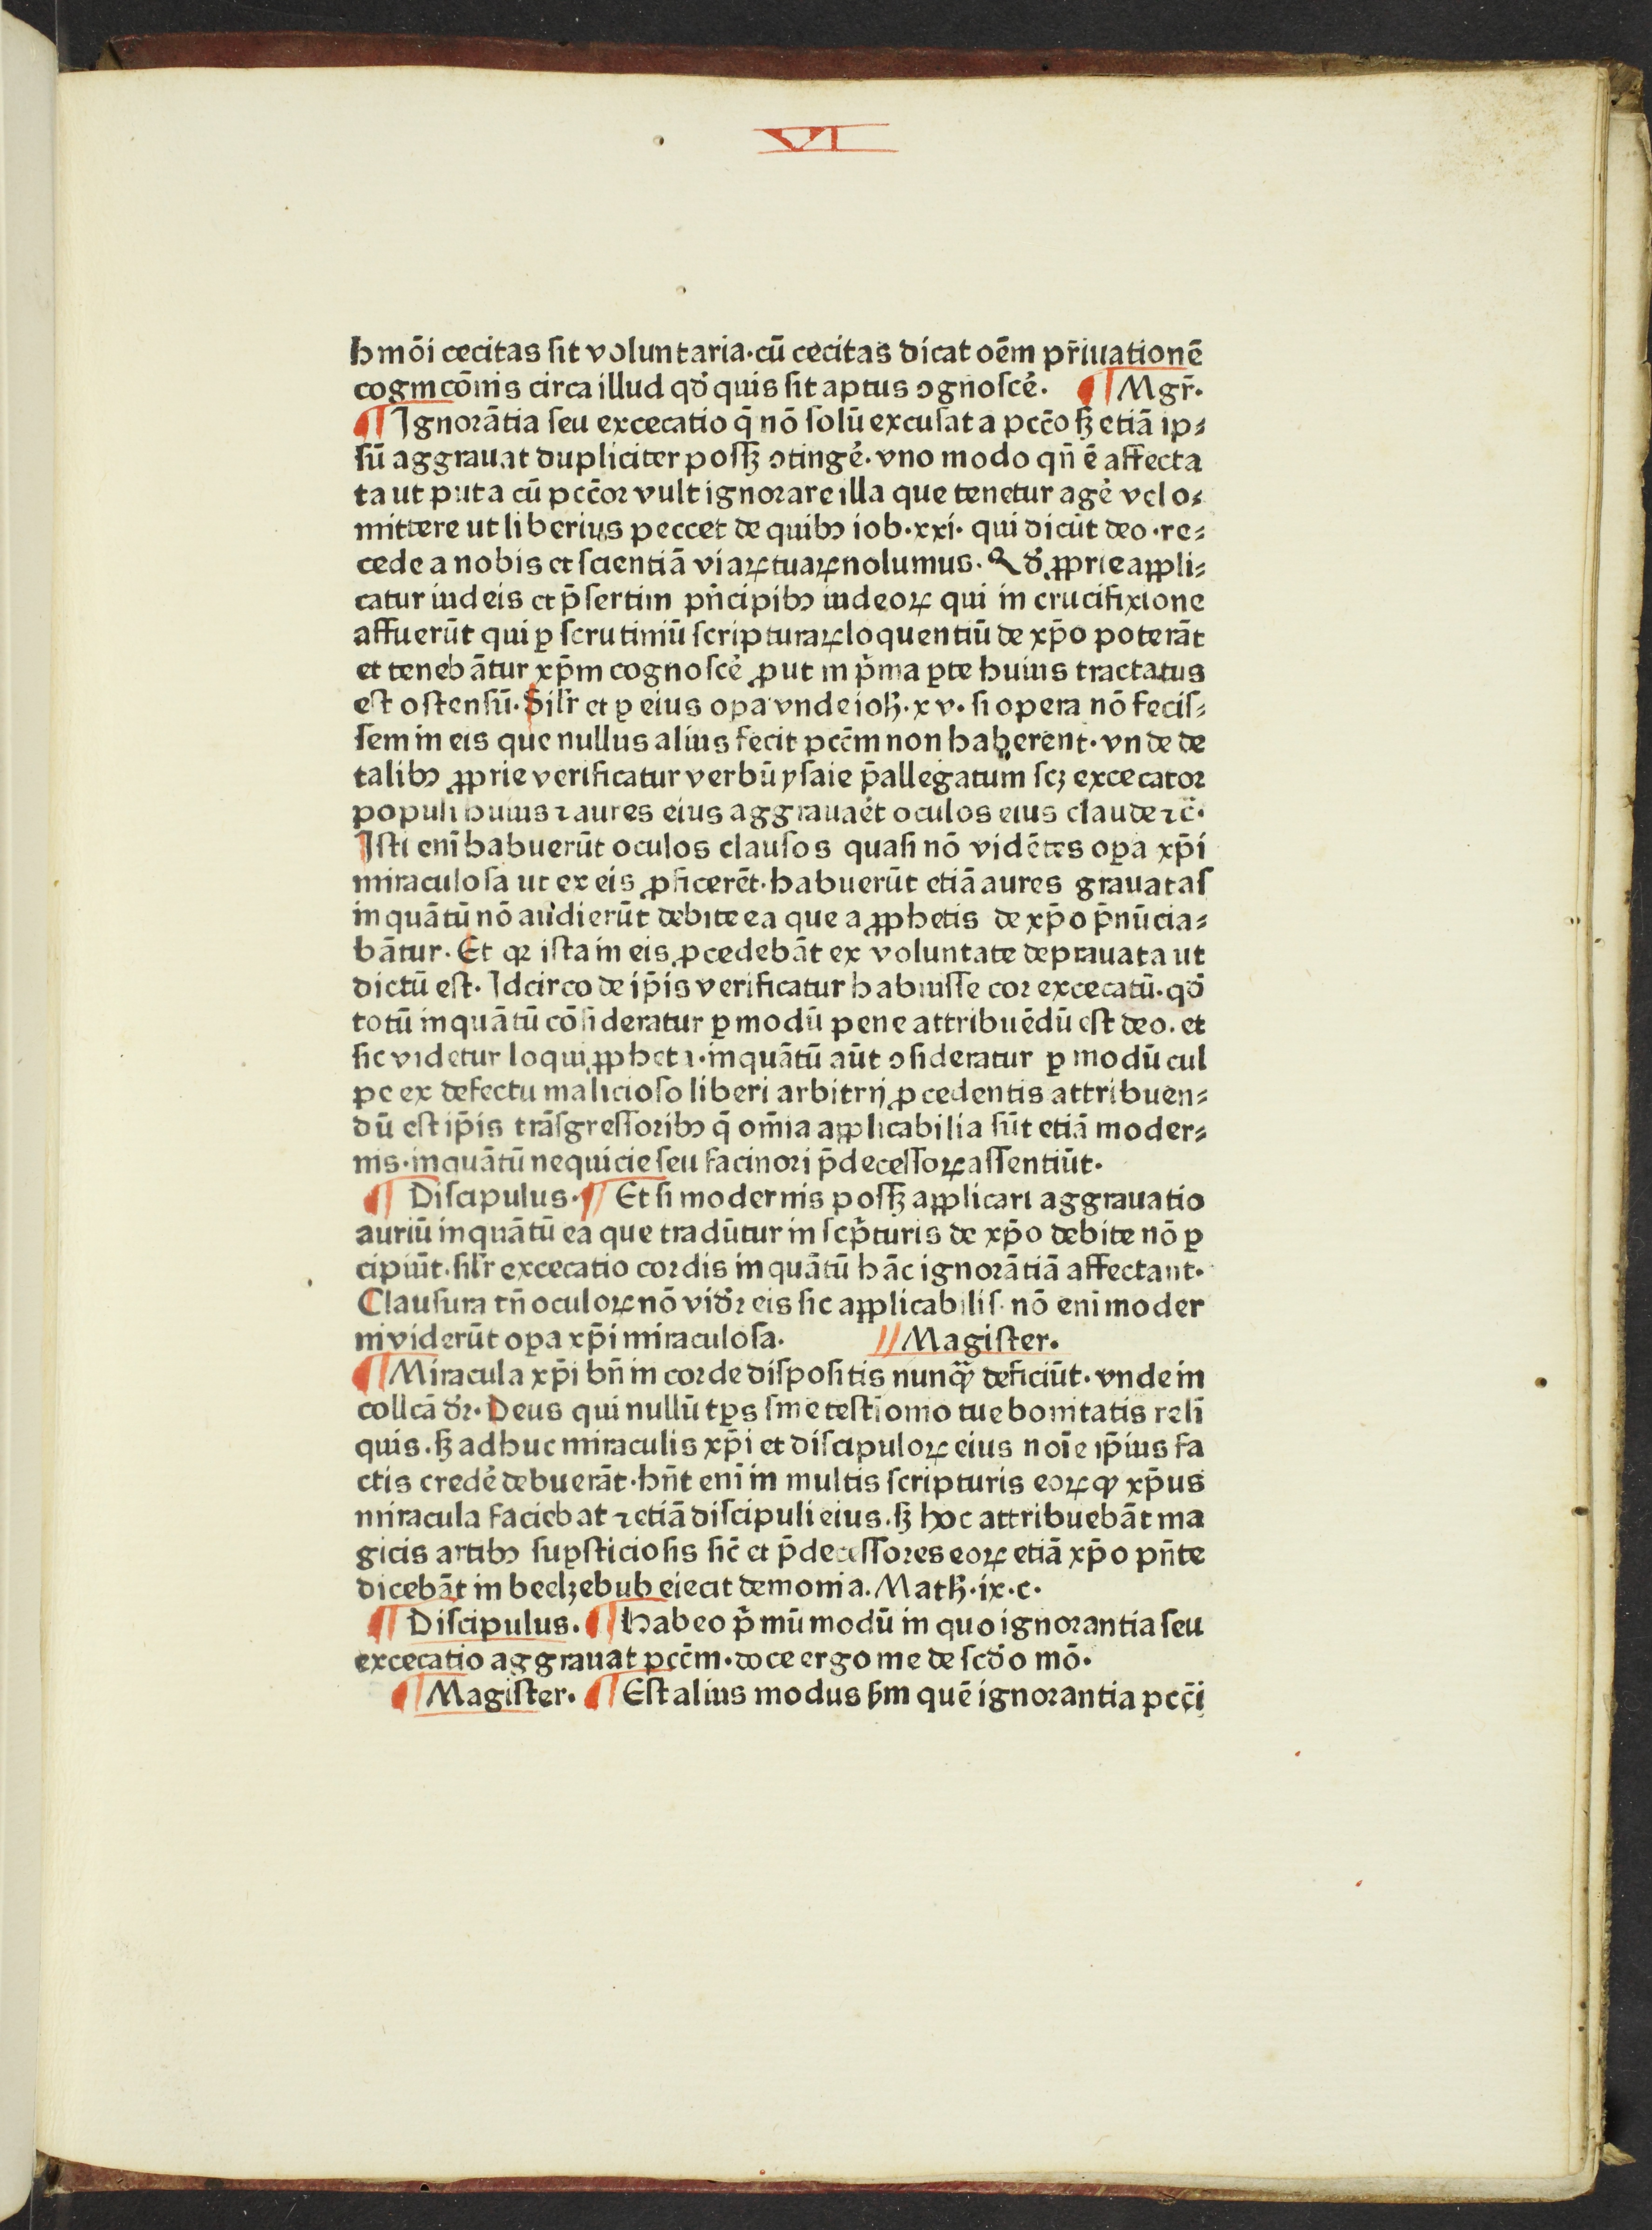 VI
hmōi cecitas sit voluntaria·cū cecitas dicat oēm pr̄iuationē
cognicōnis circa illud qđ quis sit aptus ꝯgnoscē. ¶ Mgr̄.
¶ Ignorātia seu excecatio q̄ nō solū excusat a pcc̄o sꝫ etiā ip⸗
sū aggrauat dupliciter possꝫ ꝯtingē. vno modo qn̄ ē affecta
ta ut puta cū pcc̄or vult ignorare illa que tenetur agē vel o⸗
mittere ut liberius peccet de quibꝰ iob·xxi· qui dicūt deo·re⸗
cede a nobis et scientiā viaꝝ tuaꝝ nolumus. Qđ ꝓprie appli⸗
catur iudeis et p̄sertim pn̄cipibꝰ iudeoꝝ qui in crucifixione
affuerūt qui ꝑ scrutiniū scripturaꝝ loquentiū de xp̄o poterāt
et tenebātur xp̄m cognoscē ꝓut in p̄ma ꝑte huius tractatus
est ostensū. Silr̄ et ꝑ eius oꝑa vnde ioh̄·xv· si opera nō fecis⸗
sem in eis que nullus alius fecit pcc̄m non haberent·vnde de
talibꝰ ꝓprie verificatur verbū ysaie p̄allegatum scꝫ excecator
populi huius ⁊ aures eius aggrauaēt oculos eius claude ⁊c̄·
Isti enī habuerūt oculos clausos quasi nō vidētes oꝑa xp̄i
miraculosa ut ex eis ꝓficerēt·habuerūt etiā aures grauatas
inquātū nō audierūt debite ea que a ꝓphetis de xp̄o p̄nūcia⸗
bātur. Et qꝛ ista in eis ꝓcedebāt ex voluntate deprauata ut
dictū est. Idcirco de ip̄is verificatur habuisse cor excecatū·qđ
totū inquātū cōsideratur ꝑ modū pene attribuēdū est deo. et
sic videtur loqui ꝓpheta·inquātū aūt ꝯsideratur ꝑ modū cul
pe ex defectu malicioso liberi arbitrij ꝓcedentis attribuen⸗
dū est ip̄is trāsgressoribꝰ q̄ om̄ia applicabilia sūt etiā moder⸗
nis·inquātū nequicie seu facinori p̄decessoꝝ assentiūt·
¶ Discipulus. ¶ Et si modernis possꝫ applicari aggrauatio
auriū inquātū ea que tradūtur in scp̄turis de xp̄o debite nō ꝑ
cipiūt·silr̄ excecatio cordis inquātū hāc ignorātiā affectant·
Clausura tn̄ oculoꝝ nō vidr̄ eis sic applicabilis· nō eni moder
ni viderūt oꝑa xp̄i miraculosa. // Magister.
¶ Miracula xp̄i bn̄ in corde dispositis nunqꝫ deficiūt·vnde in
collcā dr̄. Deus qui nullū tꝑs sine testīomo tue bonitatis reli
quis·sꝫ adhuc miraculis xp̄i et discipuloꝝ eius noīe ip̄ius fa
ctis credē debuerāt·hn̄t enī in multis scripturis eoꝝ qꝫ xp̄us
miracula faciebat ⁊ etiā discipuli eius·sꝫ hoc attribuebāt ma
gicis artibꝰ suꝑsticiosis sic̄ et p̄decessores eoꝝ etiā xp̄o pn̄te
dicebāt in beelzebub eiecit demonia. Math̄·ix·c·
¶ Discipulus. ¶ Habeo p̄mū modū in quo ignorantia seu
excecatio aggrauat pcc̄m·doce ergo me de scđo mō.
¶ Magister. ¶ Est alius modus sꝫm quē ignorantia pcc̄i